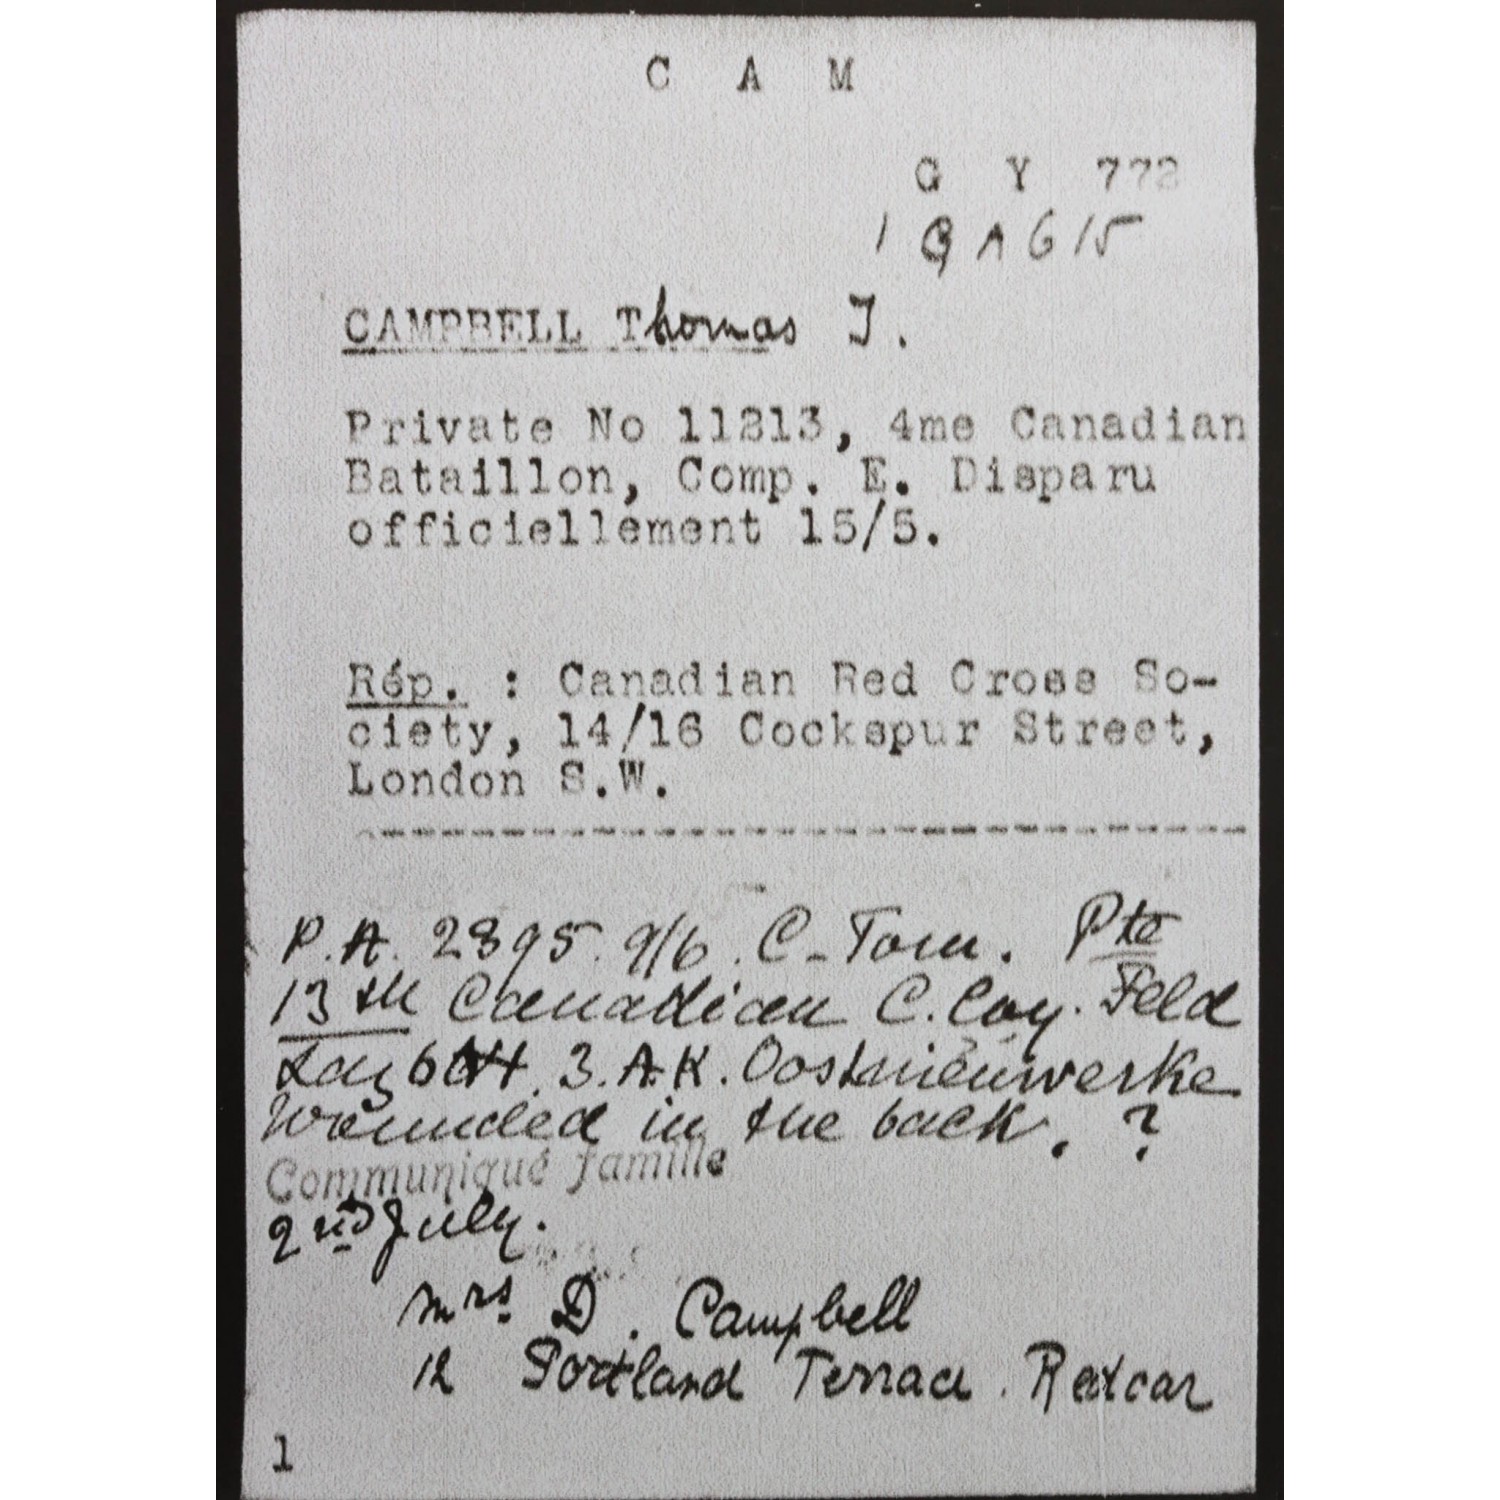 C A M
G Y 772
1 Q A G 15
CAMPBELL Thomas J.
Private No 11213, 4me Canadian
Bataillon, Comp. E. Disparu
officiellement 15/5.
Rép. : Canadian Red Cross So-
ciety, 14/16 Cockspur Street,
London S.W.
P.A. 2895. 9/6. C - Tom. Pte
13th Canadian C. Coy. Feld
Laz 3. A.K. Oostnieuwerke
Wounded in the back. ?
Communiqué famille
2nd July.
Mrs. D. Campbell
12 Portland Terrace. Redcar
1